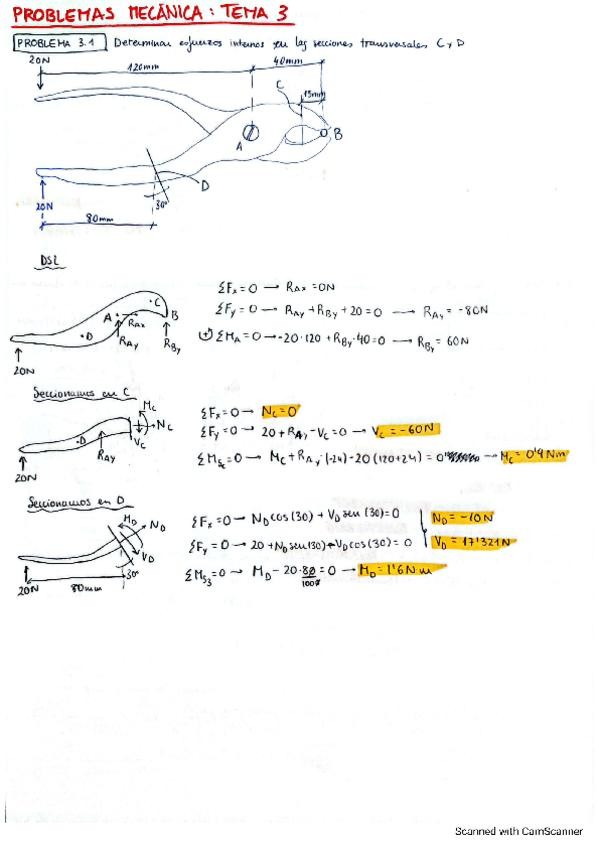 PROBLEMAS MECÁNICA: TEMA 3
PROBLEMA 3.1 Determinar esfuerzos internos en las secciones transversales C y D
20N
120mm
40mm
C
15mm
A
B
D
20N
30°
80mm
DSL
ΣFx=0 → RAx=0N
ΣFy=0 → RAy+RBy+20=0 → RAy=-80N
ΣMA=0 → -20·120+RBy·40=0 → RBy=60N
C
A
B
D
RAx
RAy
RBy
20N
Seccionamos en C
Mc
Nc
Vc
D
RAy
20N
ΣFx=0 → Nc=0
ΣFy=0 → 20+RAy-Vc=0 → Vc=-60N
ΣMsc=0 → Mc+RAy·(-24)-20(120+24)=0 → Mc=0'9Nm
Seccionamos en D
MD
ND
VD
20N
80mm
30°
ΣFx=0 → NDcos(30)+VDsen(30)=0
ND=-10N
ΣFy=0 → 20+NDsen(30)-VDcos(30)=0
VD=17'321N
ΣMs3=0 → MD-20·80/1000=0 → MD=1'6N·m
Scanned with CamScanner